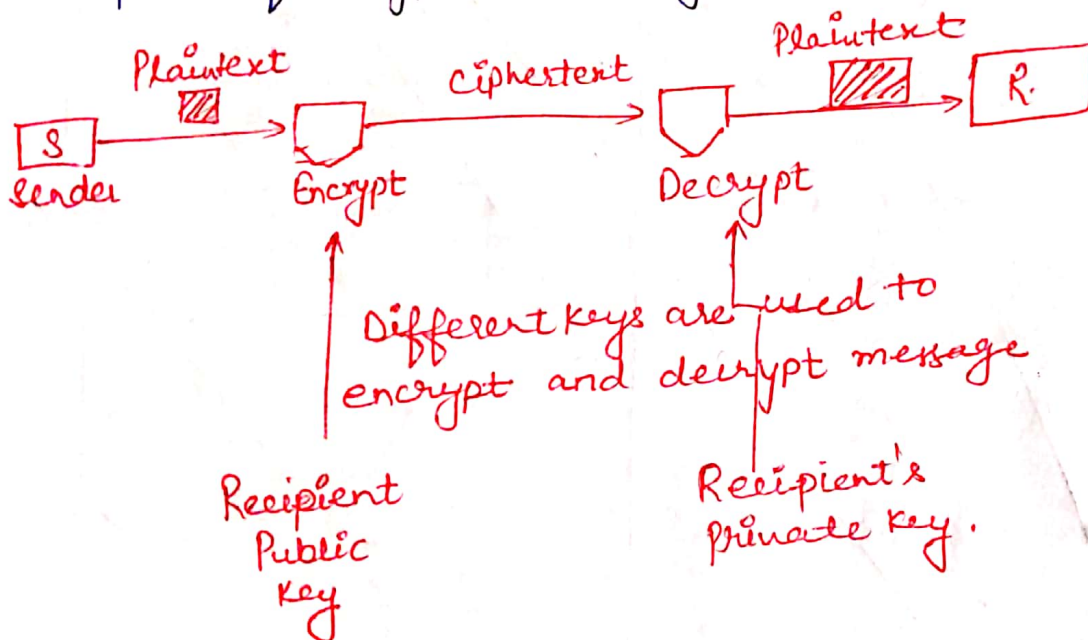 Plaintext
Ciphertext
Plaintext
S
R.
Sender
Encrypt
Decrypt
Different keys are used to
encrypt and decrypt message
Recipient
Public
Key
Recipient's
private key.